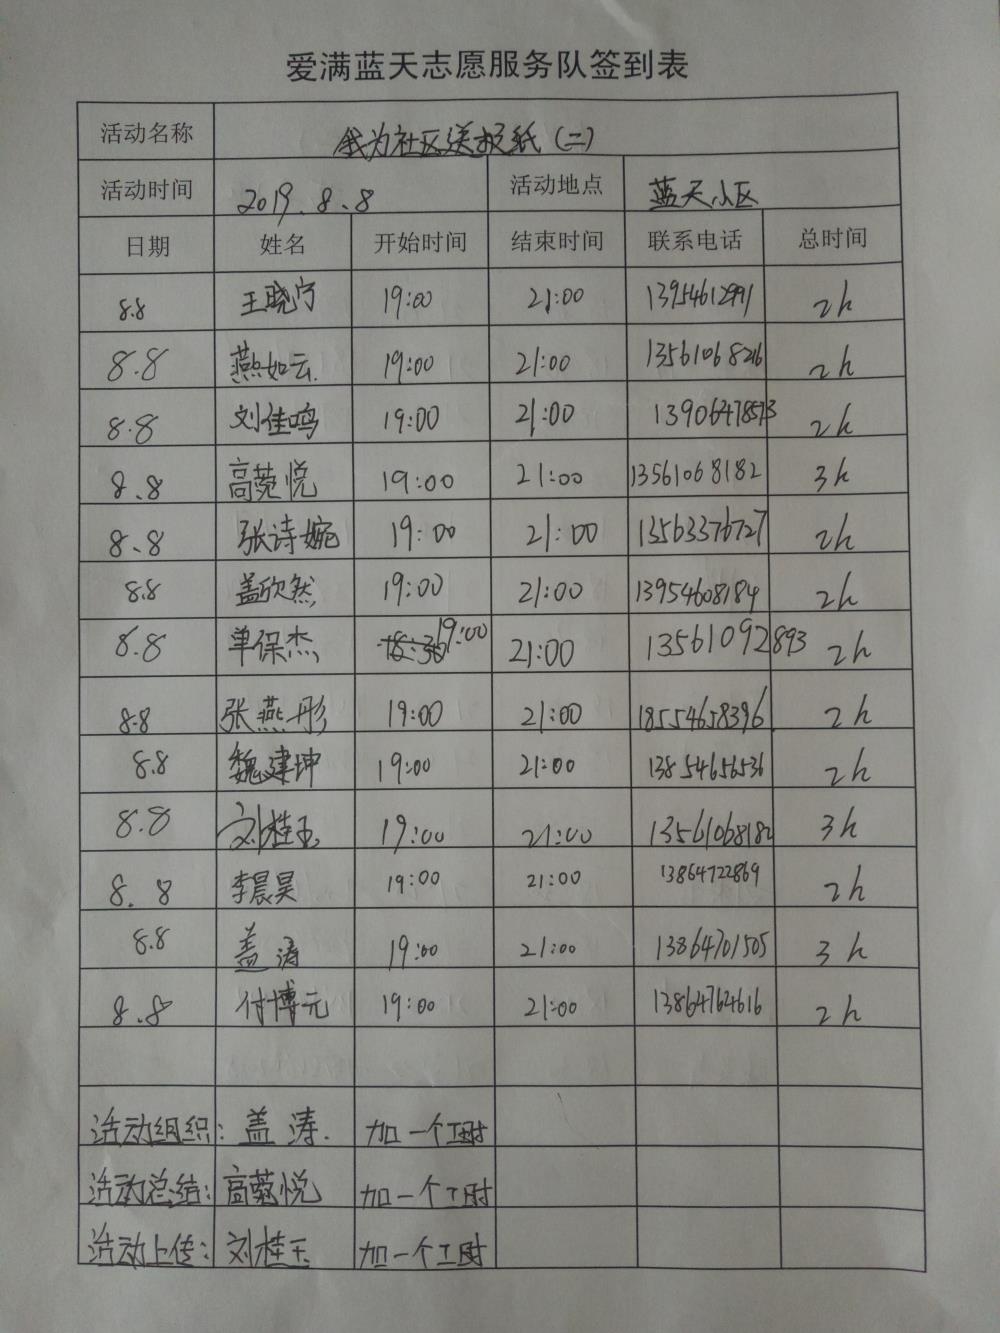 爱满蓝天志愿服务队签到表
活动名称 我为社区送报纸(二)
活动时间 2019.8.8 活动地点 蓝天小区
日期 姓名 开始时间 结束时间 联系电话 总时间
8.8 王晓宁 19:00 21:00 13954612991 2h
8.8 燕如云 19:00 21:00 13561068216 2h
8.8 刘佳鸣 19:00 21:00 13906478573 2h
8.8 高菀悦 19:00 21:00 13561068182 3h
8.8 张诗婉 19:00 21:00 13563376727 2h
8.8 盖欣然 19:00 21:00 13954608184 2h
8.8 单保杰 19:00 21:00 13561092893 2h
8.8 张燕彤 19:00 21:00 18554658396 2h
8.8 魏建坤 19:00 21:00 13854656536 2h
8.8 刘桂玉 19:00 21:00 13561068182 3h
8.8 李晨昊 19:00 21:00 13864722869 2h
8.8 盖涛 19:00 21:00 13864701505 3h
8.8 付博元 19:00 21:00 13864764616 2h
活动组织: 盖涛. 加一个工时
活动总结: 高菀悦 加一个工时
活动上传: 刘桂玉 加一个工时